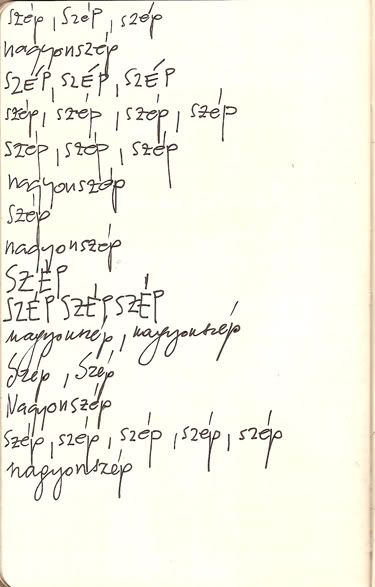 szép, szép, szép
nagyonszép
SZÉP, SZÉP, SZÉP
szép, szép, szép, szép
szép, szép, szép
nagyonszép
szép
nagyonszép
SZÉP
SZÉP SZÉP SZÉP
nagyonszép, nagyonszép
Szép, Szép
Nagyonszép
szép, szép, szép, szép, szép
nagyonszép